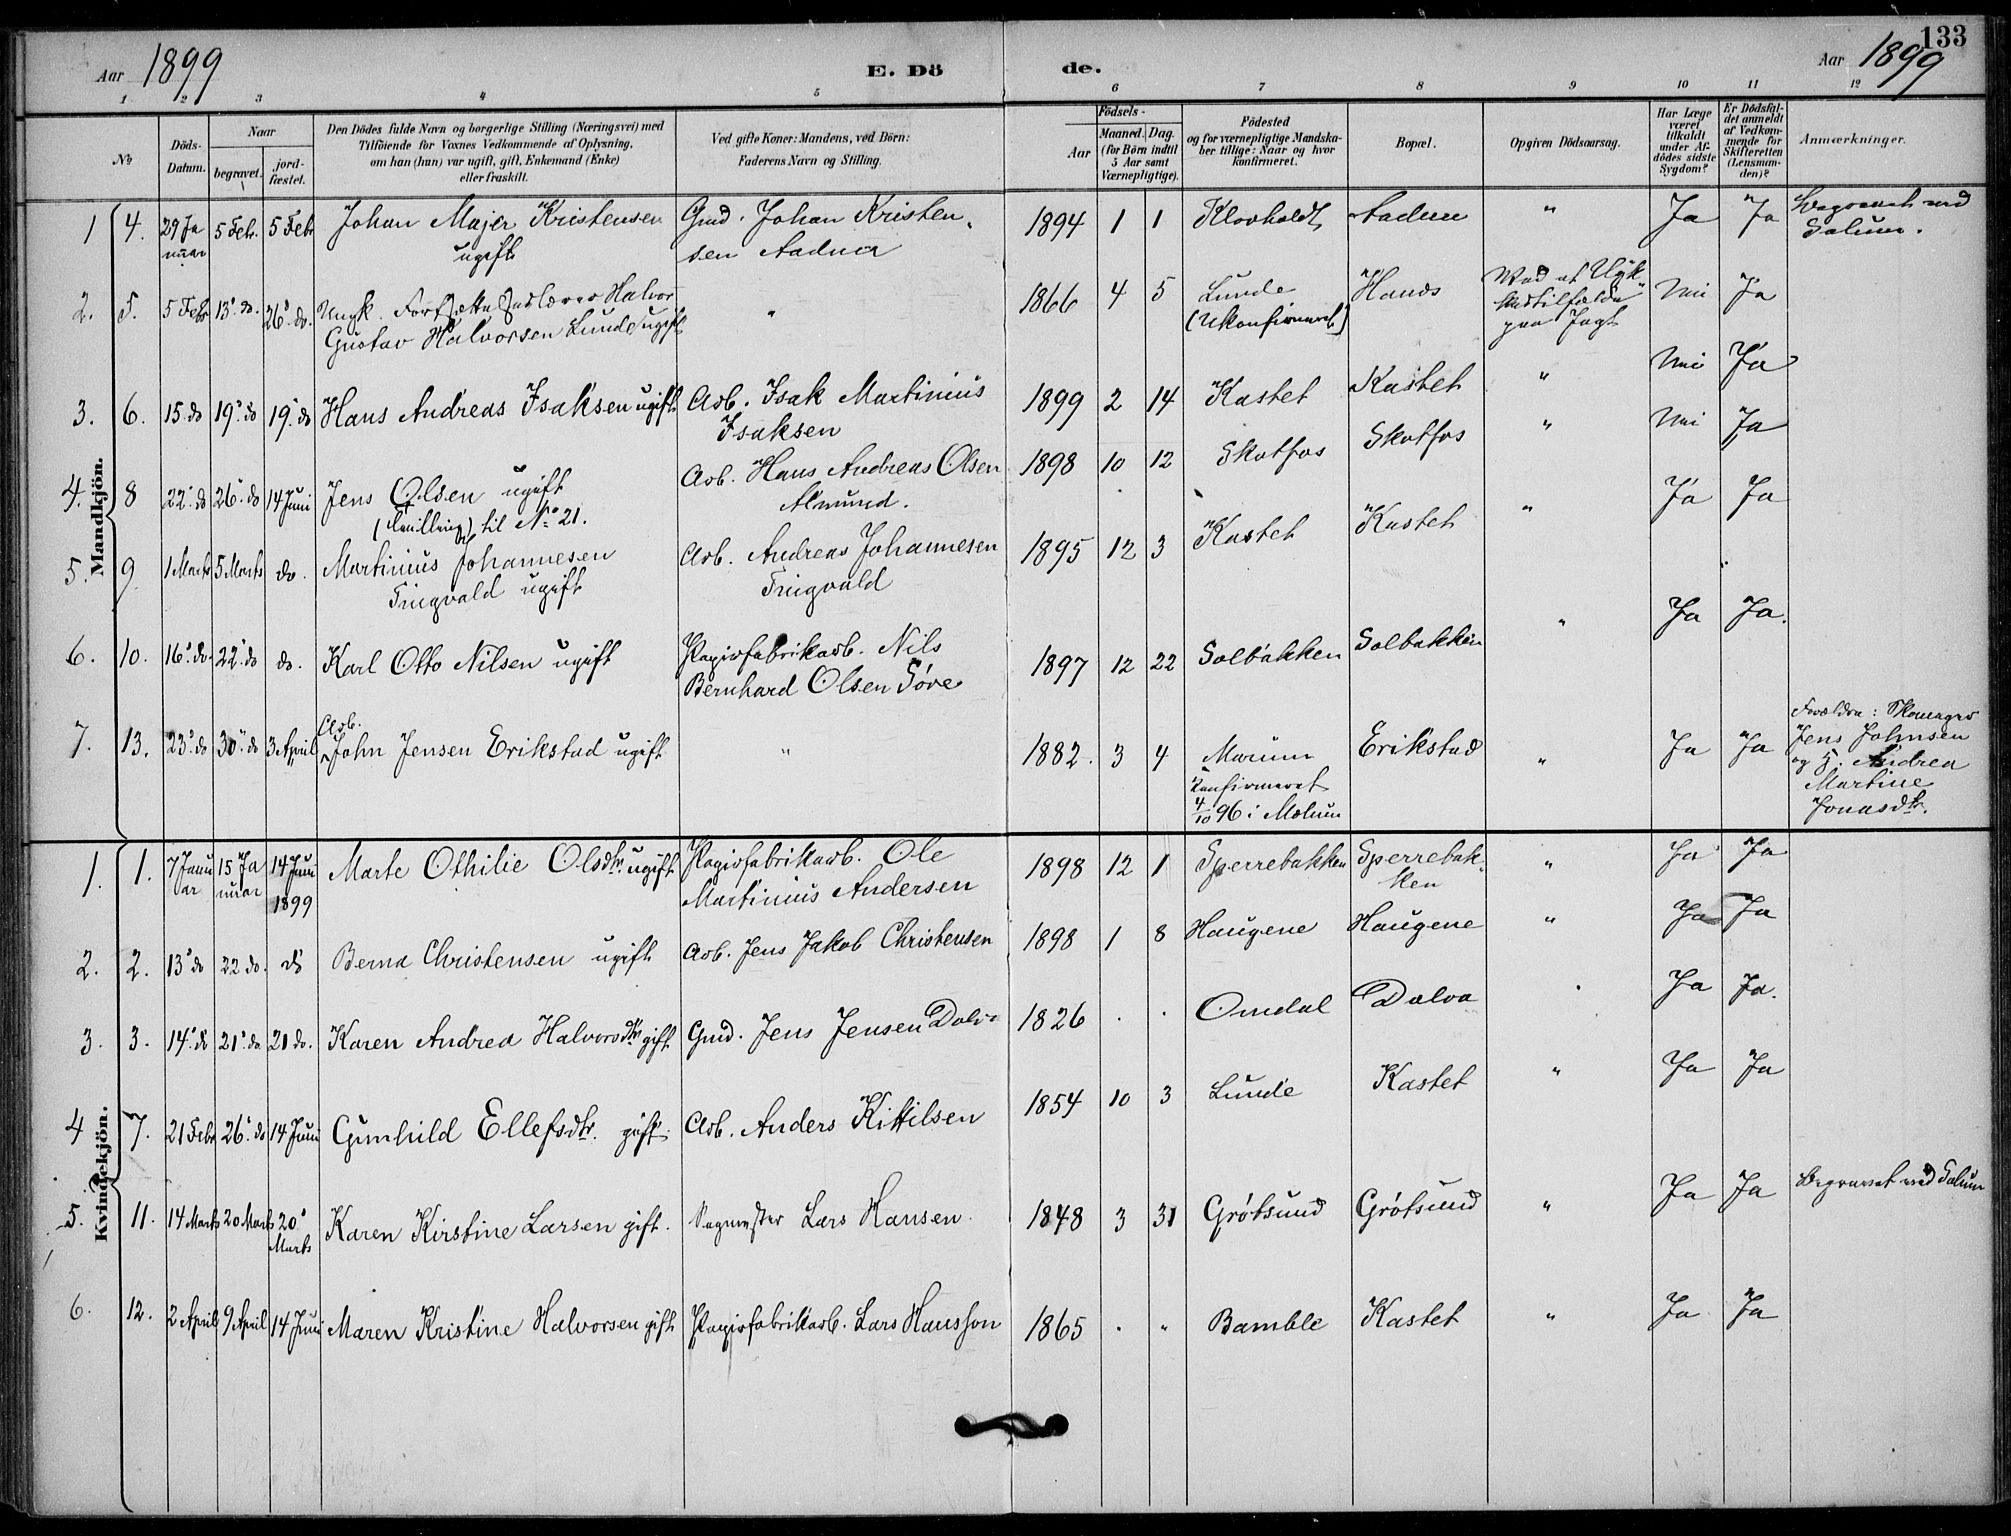 133
Aar 1899
E. Dö
de.
Aar 1899
1 2 3 4 5 6 7 8 9 10 11 12
No
Döds-
Datum.
Naar
begravet.
jord-
fæstet.
Den Dödes fulde Navn og borgerlige Stilling (Næringsvei) med
Tilföiende for Voxnes Vedkommende af Oplysning,
om han (hun) var ugift, gift, Enkemand (Enke)
eller fraskilt.
Ved gifte Koner: Mandens, ved Börn:
Faderens Navn og Stilling.
Födsels-
Aar
Maaned. Dag.
(for Börn indtil
5 Aar samt
Værnepligtige).
Födested
og for værnepligtige Mandska-
ber tillige: Naar og hvor
konfirmeret.
Bopæl.
Opgiven Dödsaarsag.
Har Læge
været
tilkaldt
under Af-
dödes sidste
Sygdom?
Er Dödsfal-
det anmeldt
af Vedkom-
mende for
Skifteretten
(Lensman-
den)?
Anmærkninger.
Mandkjön.
1 4. 29 Ja 5 Febr. 5 Febr Johan Majer Kristensen Gmd. Johan Kristen- 1894 1 1 Klovholdt Aadnes " Ja Ja Begravet ved
nuar ugift sen Aadnes Solum.
2. 5. 5 Febr 13' do. 26' do. Ungk. Halvor " 1866 4 5 Lunde Hanes Vaad et Ulyk- Nei Ja
Gustav Halvorsen Lunde ugift (Ukonfirmeret) kestilfælde
paa Jagt
3. 6. 15 do 19' do 19' do Hans Andreas Isaksen ugift Arb. Isak Martinius 1899 2 14 Kastet Kastet " Nei Ja
Isaksen
4. 8 22' do 26' do 14 Juni Jens Olsen ugift Arb. Hans Andreas Olsen 1898 10 12 Skotfos Skotfos " Nei Ja
(Tvilling) til No 21. Aamund.
5. 9 1 Marts 5 Marts do. Martinius Johannesen Arb. Andreas Johannesen 1895 12 3 Kastet Kastet " Ja Ja
Tingvald ugift Tingvald
6. 10. 16' do. 22' do do. Karl Otto Nilsen ugift Papirfabrikarb. Nils 1897 12 22 Solbakken Solbakken " Ja Ja.
Bernhard Olsen Söve
7. 13. 23' do 30' do 3 April Arb. John Jensen Erikstad ugift " 1882. 3 4 Mælum Erikstad " Ja Ja Forældre: Skomager
konfirmeret Jens Johnsen
4/10 96 i Mælum og H. Andrea
Martine
Jonasdtr.
Kvindekjön.
1. 1. 7 Janu 15 Ja 14 Juni Marte Othilie Olsdtr. ugift Papirfabrikarb. Ole 1898 12 1 Sperrebakken Sperrebak- " Ja Ja
ar nuar 1899 Martinius Andersen ken
2. 2. 13' do 22 do. do Berna Christensen ugift Arb. Jens Jakob Christensen 1898 1 8 Haugene Haugene " Ja Ja
3. 3. 14' do 21' do 21 do. Karen Andrea Halvorsdtr. gift Gmd. Jens Jensen Dalva 1826 . . Omdal Dalva . Ja Ja.
4 7. 21 Febr 26' do 14 Juni Gunhild Ellefsdtr. gift. Arb. Anders Kittilsen 1854 10 3 Lunde Kastet " Ja Ja
5. 11. 14 Marts 20 Marts 20' Karen Kirstine Larsen gift. Sagmester Lars Hansen. 1848 3 31 Grötsund Grötsund " Ja Ja Begravet ved Solum
Marts
6. 12. 2 April 9 April 14 Juni Maren Kristine Halvorsen gift Papirfabrikarb. Lars Hansson 1865 . " Bamble Kastet " Ja Ja